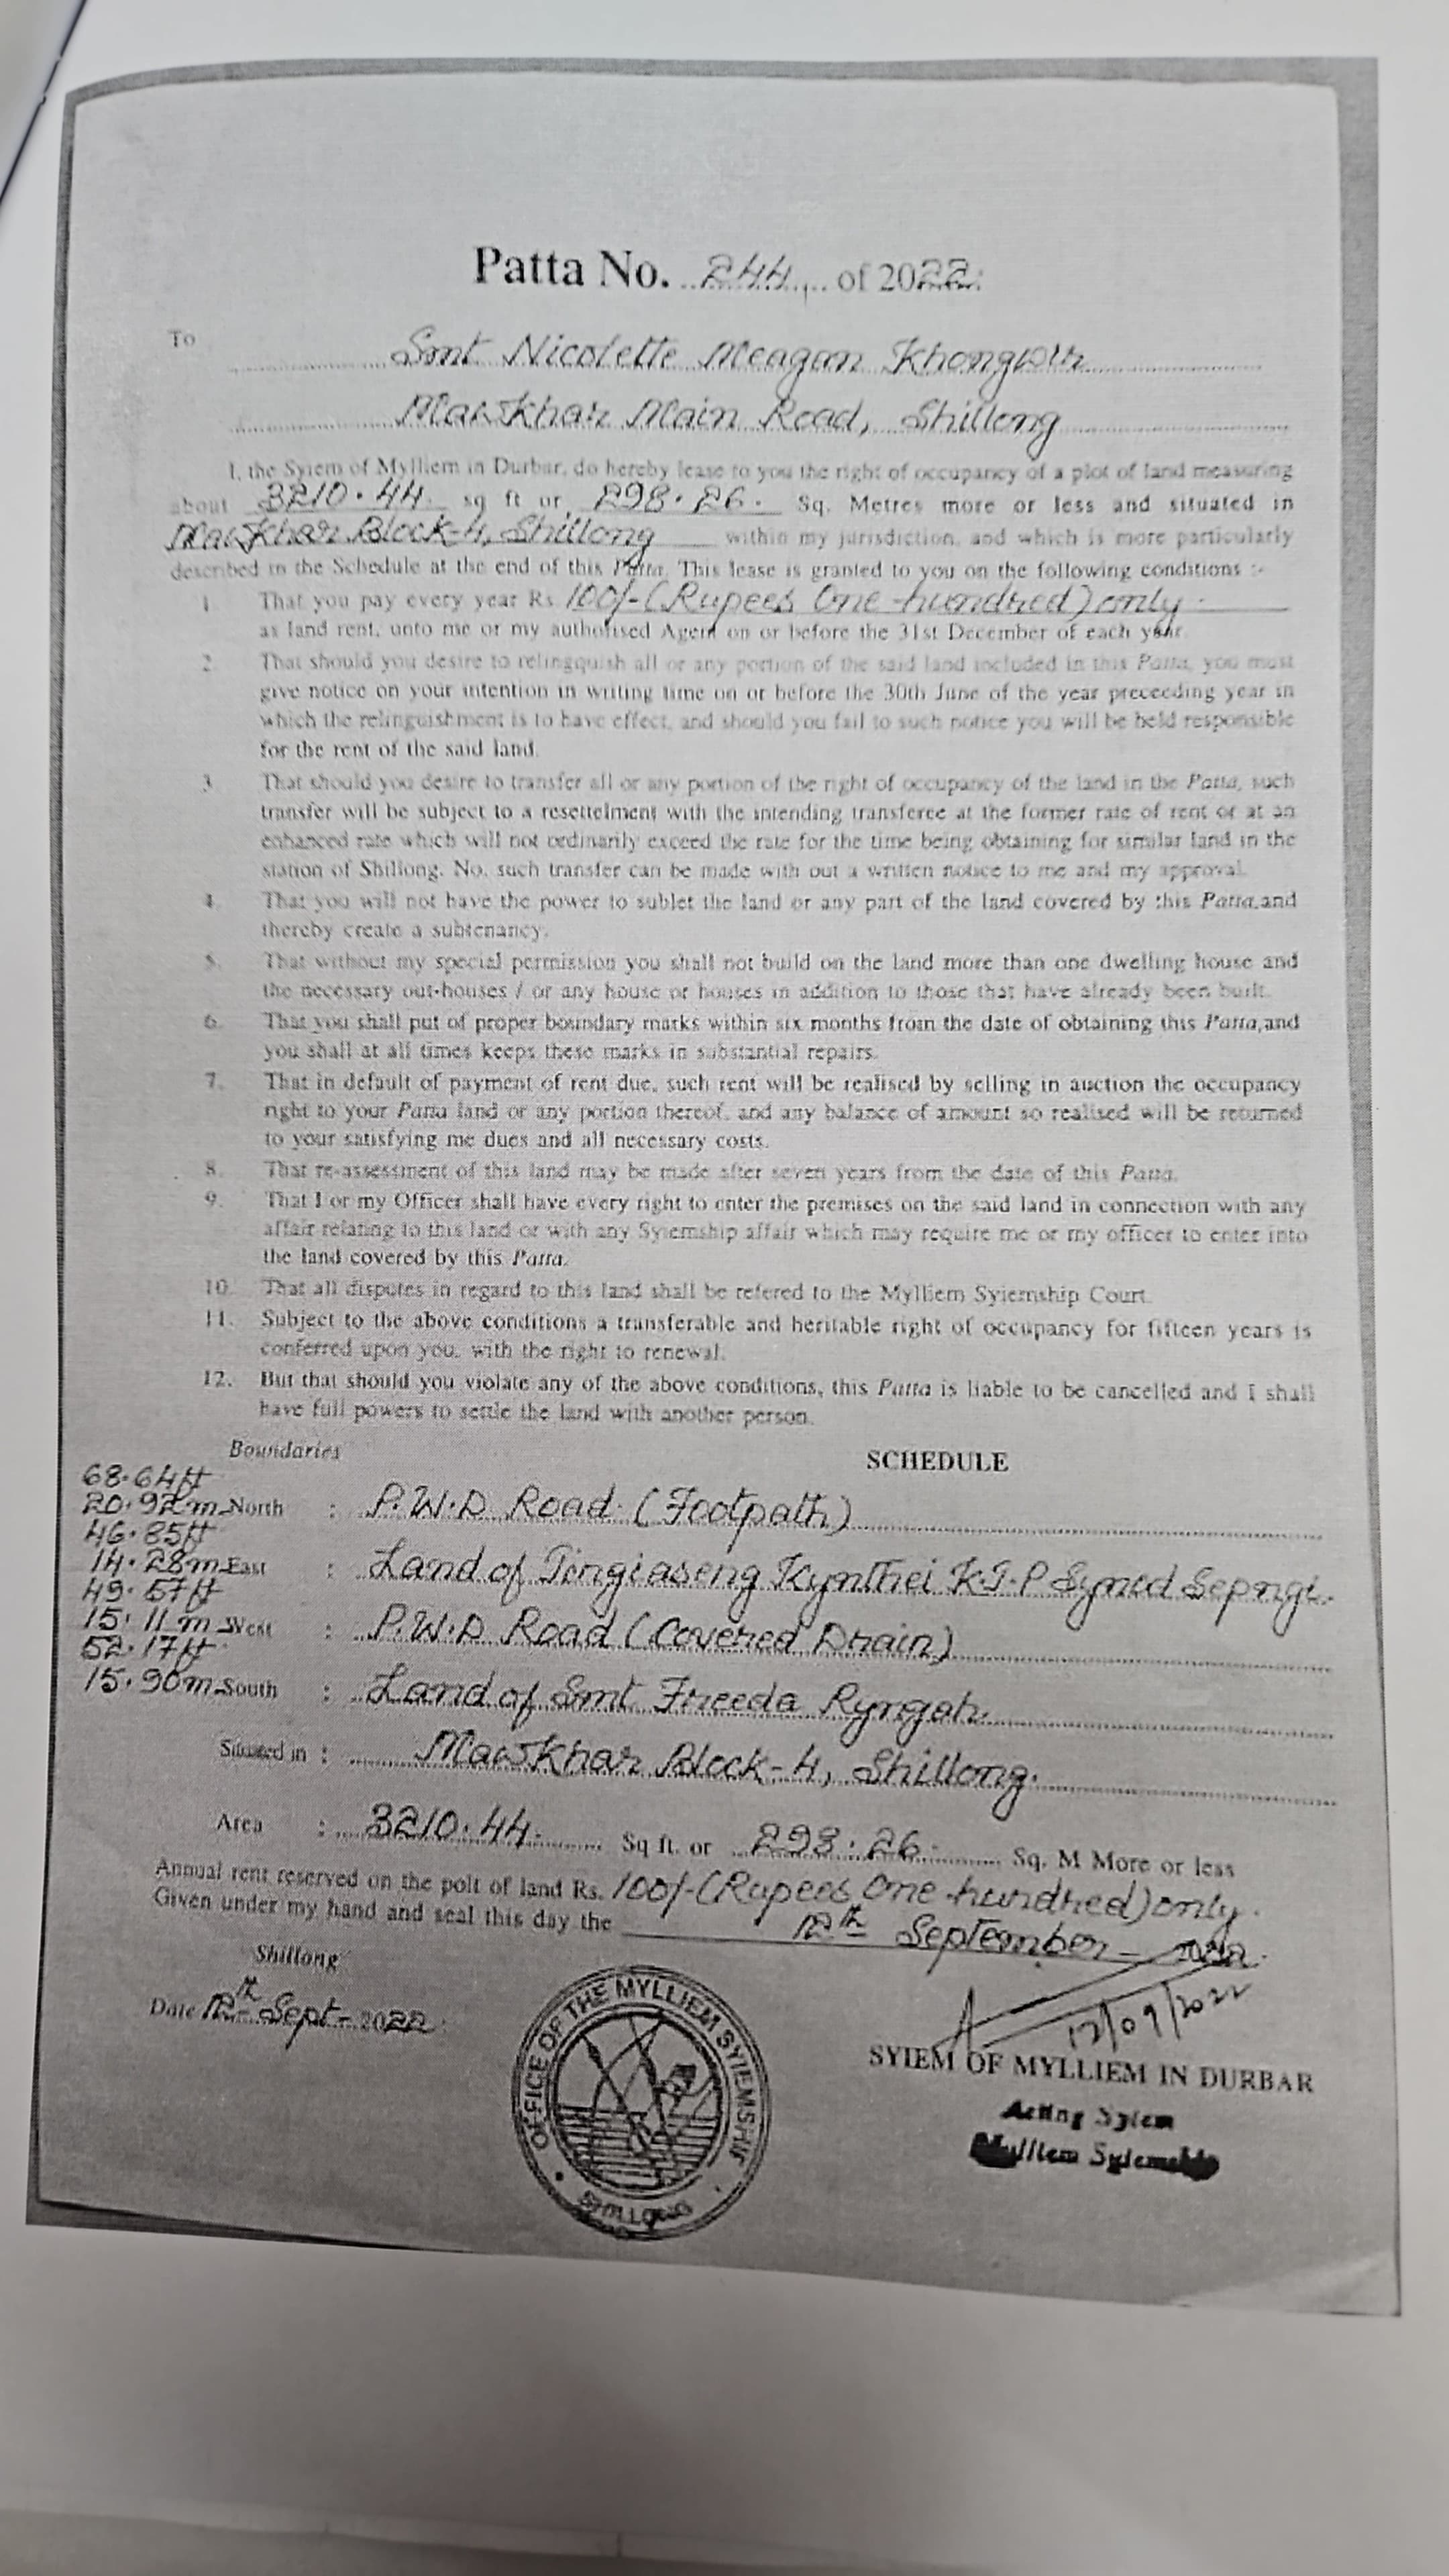 Patta No. 244 of 2022.
To
Smt Nicolette Meagan Khongwir
Mawkhar Main Road, Shillong
I, the Syiem of Mylliem in Durbar, do hereby lease to you the right of occupancy of a plot of land measuring
about 3210.44 sq ft or 298.26. Sq. Metres more or less and situated in
Mawkhar Block-4, Shillong within my jurisdiction, and which is more particularly
described in the Schedule at the end of this Patta. This lease is granted to you on the following conditions :-
1. That you pay every year Rs. 100/- (Rupees One hundred) only.
as land rent, unto me or my authorised Agent on or before the 31st December of each year.
2. That should you desire to relingquish all or any portion of the said land included in this Patta, you must
give notice on your intention in writing time on or before the 30th June of the year preceeding year in
which the relinguishment is to have effect, and should you fail to such notice you will be held responsible
for the rent of the said land.
3. That should you desire to transfer all or any portion of the right of occupancy of the land in the Patta, such
transfer will be subject to a resettelment with the intending transferee at the former rate of rent or at an
enhanced rate which will not ordinarily exceed the rate for the time being obtaining for similar land in the
station of Shillong. No, such transfer can be made with out a written notice to me and my approval.
4. That you will not have the power to sublet the land or any part of the land covered by this Patta,and
thereby create a subtenancy.
5. That without my special permission you shall not build on the land more than one dwelling house and
the necessary out-houses / or any house or houses in addition to those that have already been built.
6. That you shall put of proper boundary marks within six months from the date of obtaining this Patta,and
you shall at all times keeps these marks in substantial repairs.
7. That in default of payment of rent due, such rent will be realised by selling in auction the occupancy
right to your Patta land or any portion thereof, and any balance of amount so realised will be returned
to your satisfying me dues and all necessary costs.
8. That re-assessment of this land may be made after seven years from the date of this Patta.
9. That I or my Officer shall have every right to enter the premises on the said land in connection with any
affair relating to this land or with any Syiemship affair which may require me or my officer to enter into
the land covered by this Patta.
10. That all disputes in regard to this land shall be refered to the Mylliem Syiemship Court.
11. Subject to the above conditions a transferable and heritable right of occupancy for fifteen years is
conferred upon you, with the right to renewal.
12. But that should you violate any of the above conditions, this Patta is liable to be cancelled and I shall
have full powers to settle the land with another person.
Boundaries SCHEDULE
68.64ft
20.92m North : P.W.D Road (Footpath)
46.85ft
14.28m East : Land of Tingiaseng Kynthei K.J.P Synod Sepngi
49.57ft
15.11m West : P.W.D Road (Covered Drain)
52.17ft
15.90m South : Land of Smt Freeda Ryngah
Situated in : Mawkhar Block-4, Shillong.
Area : 3210.44. Sq ft. or 298.26. Sq. M More or less
Annual rent reserved on the polt of land Rs. 100/- (Rupees One hundred) only.
Given under my hand and seal this day the 12th September - 2022.
Shillong
Date 12th Sept - 2022.
12/09/2022
SYIEM OF MYLLIEM IN DURBAR
Acting Syiem
Mylliem Syiemship
OFFICE OF THE MYLLIEM SYIEMSHIP
SHILLONG